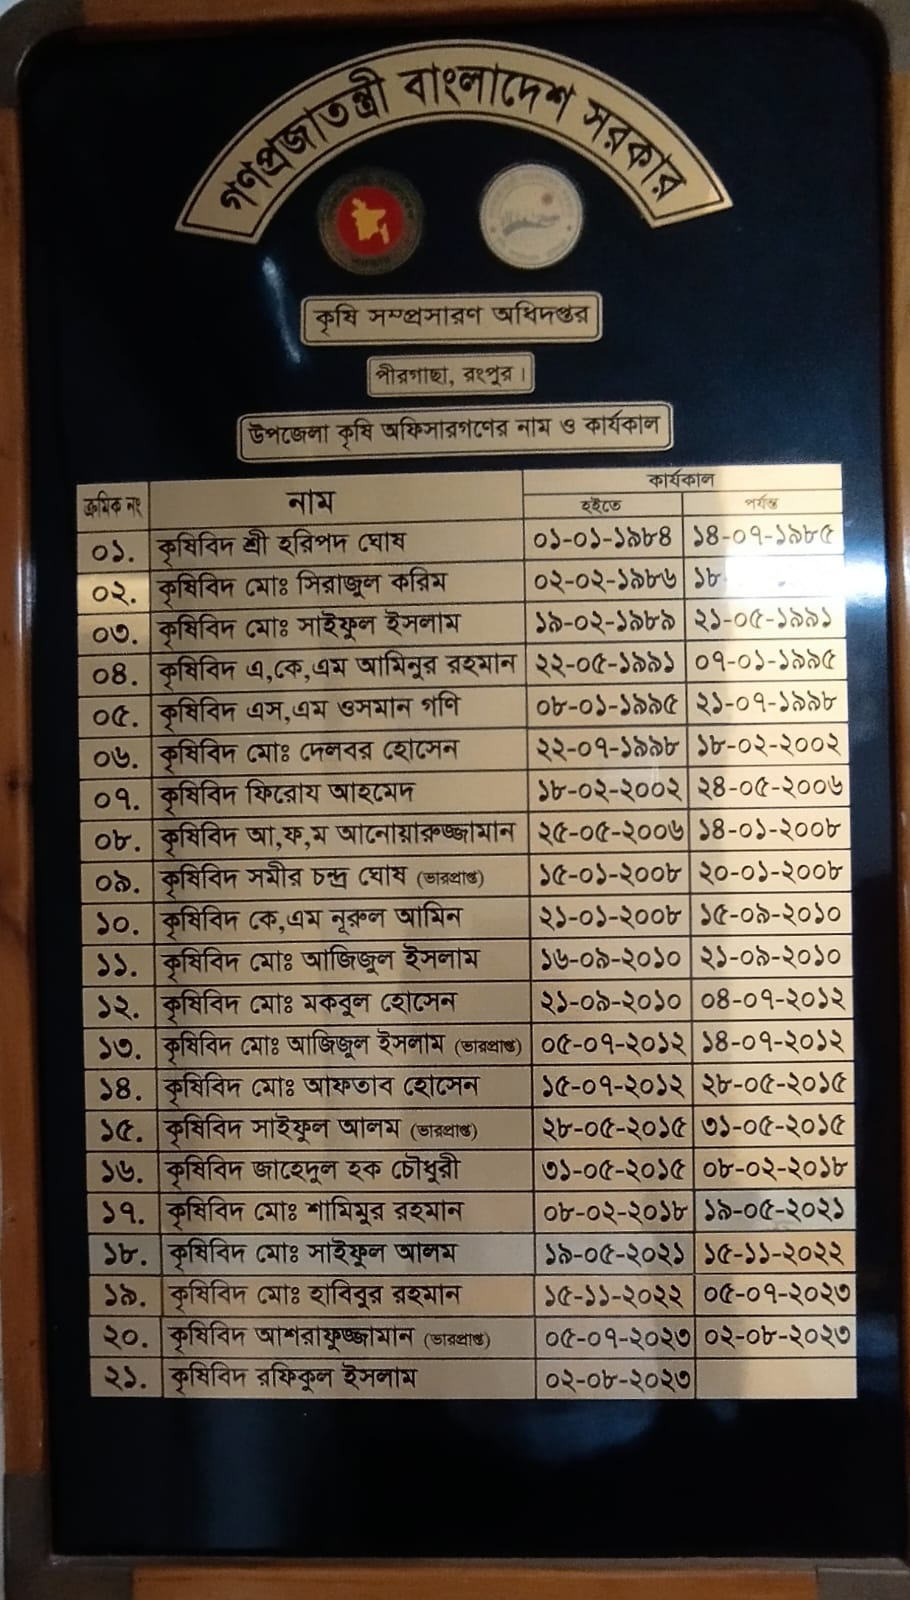 গণপ্রজাতন্ত্রী বাংলাদেশ সরকার
কৃষি সম্প্রসারণ অধিদপ্তর
পীরগাছা, রংপুর।
উপজেলা কৃষি অফিসারগণের নাম ও কার্যকাল
ক্রমিক নং নাম কার্যকাল
হইতে পর্যন্ত
০১. কৃষিবিদ শ্রী হরিপদ ঘোষ ০১-০১-১৯৮৪ ১৪-০৭-১৯৮৫
০২. কৃষিবিদ মোঃ সিরাজুল করিম ০২-০২-১৯৮৬ ১৮-
০৩. কৃষিবিদ মোঃ সাইফুল ইসলাম ১৯-০২-১৯৮৯ ২১-০৫-১৯৯১
০৪. কৃষিবিদ এ,কে,এম আমিনুর রহমান ২২-০৫-১৯৯১ ০৭-০১-১৯৯৫
০৫. কৃষিবিদ এস,এম ওসমান গণি ০৮-০১-১৯৯৫ ২১-০৭-১৯৯৮
০৬. কৃষিবিদ মোঃ দেলবর হোসেন ২২-০৭-১৯৯৮ ১৮-০২-২০০২
০৭. কৃষিবিদ ফিরোয আহমেদ ১৮-০২-২০০২ ২৪-০৫-২০০৬
০৮. কৃষিবিদ আ,ফ,ম আনোয়ারুজ্জামান ২৫-০৫-২০০৬ ১৪-০১-২০০৮
০৯. কৃষিবিদ সমীর চন্দ্র ঘোষ (ভারপ্রাপ্ত) ১৫-০১-২০০৮ ২০-০১-২০০৮
১০. কৃষিবিদ কে,এম নূরুল আমিন ২১-০১-২০০৮ ১৫-০৯-২০১০
১১. কৃষিবিদ মোঃ আজিজুল ইসলাম ১৬-০৯-২০১০ ২১-০৯-২০১০
১২. কৃষিবিদ মোঃ মকবুল হোসেন ২১-০৯-২০১০ ০৪-০৭-২০১২
১৩. কৃষিবিদ মোঃ আজিজুল ইসলাম (ভারপ্রাপ্ত) ০৫-০৭-২০১২ ১৪-০৭-২০১২
১৪. কৃষিবিদ মোঃ আফতাব হোসেন ১৫-০৭-২০১২ ২৮-০৫-২০১৫
১৫. কৃষিবিদ সাইফুল আলম (ভারপ্রাপ্ত) ২৮-০৫-২০১৫ ৩১-০৫-২০১৫
১৬. কৃষিবিদ জাহেদুল হক চৌধুরী ৩১-০৫-২০১৫ ০৮-০২-২০১৮
১৭. কৃষিবিদ মোঃ শামিমুর রহমান ০৮-০২-২০১৮ ১৯-০৫-২০২১
১৮. কৃষিবিদ মোঃ সাইফুল আলম ১৯-০৫-২০২১ ১৫-১১-২০২২
১৯. কৃষিবিদ মোঃ হাবিবুর রহমান ১৫-১১-২০২২ ০৫-০৭-২০২৩
২০. কৃষিবিদ আশরাফুজ্জামান (ভারপ্রাপ্ত) ০৫-০৭-২০২৩ ০২-০৮-২০২৩
২১. কৃষিবিদ রফিকুল ইসলাম ০২-০৮-২০২৩